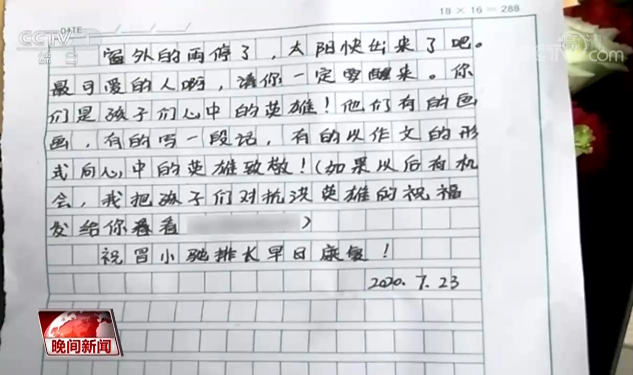 18 × 16 = 288
DATE
CCTV
综合
CCTV.
窗外的雨停了，太阳快出来了吧。
最可爱的人啊，请你一定要醒来。你
们是孩子们心中的英雄！他们有的画
画，有的写一段话，有的以作文的形
式向心中的英雄致敬！（如果以后有机
会，我把孩子们对抗洪英雄的祝福
发给你看看 ）
祝冒小驰排长早日康复！
2020.7.23
晚间新闻